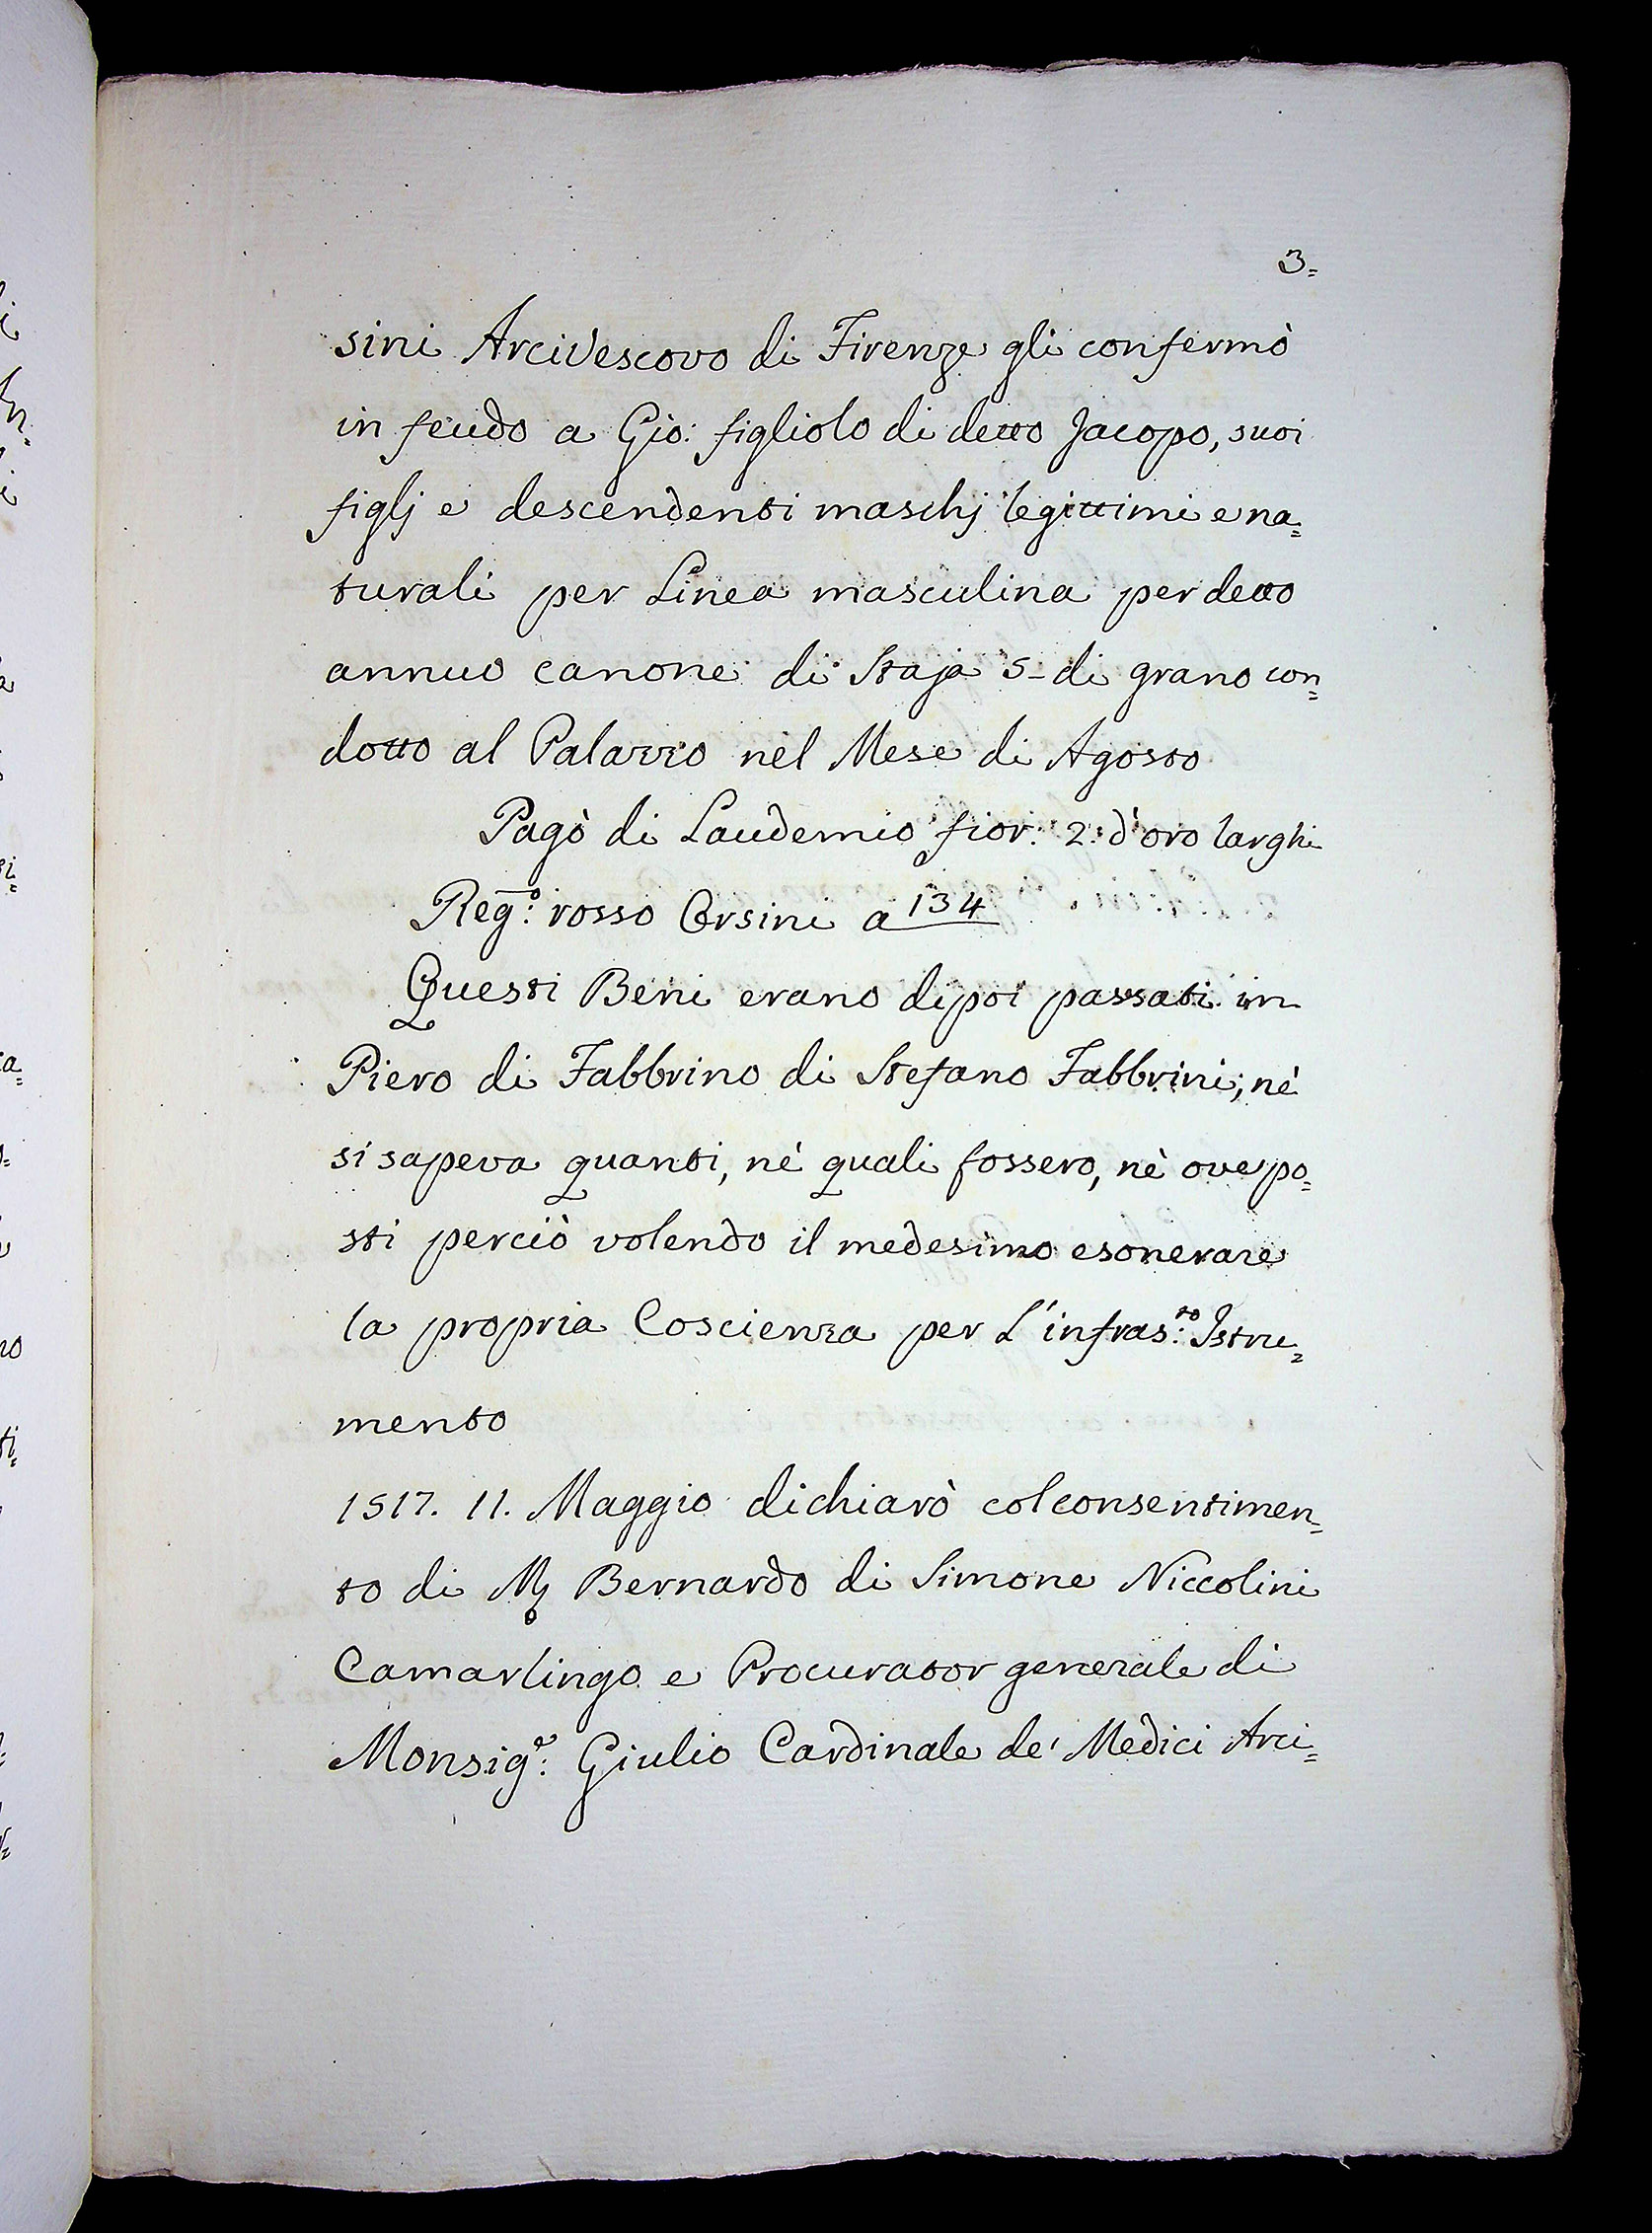 3=
sini Arcivescovo di Firenze gli confermò
in feudo a Gio: figliolo di detto Jacopo, suoi
figlj e descendenti maschj legittimi e na=
turali per Linea masculina per detto
annuo canone di Staja 5- di grano con=
dotto al Palazzo nel Mese di Agosto
Pagò di Laudemio fior: 2: d'oro larghi
Reg:º rosso Orsini a 134
Questi Beni erano dipoi passati in
Piero di Fabbrino di Stefano Fabbrini; nè
si sapeva quanti, nè quali fossero, nè ove po=
sti perciò volendo il medesimo esonerare
la propria Coscienza per L'infras:to Istru=
mento
1517. 11. Maggio dichiarò col consentimen=
to di Mʒ Bernardo di Simone Niccolini
Camarlingo e Procurator generale di
Monsig:e Giulio Cardinale de' Medici Arci=